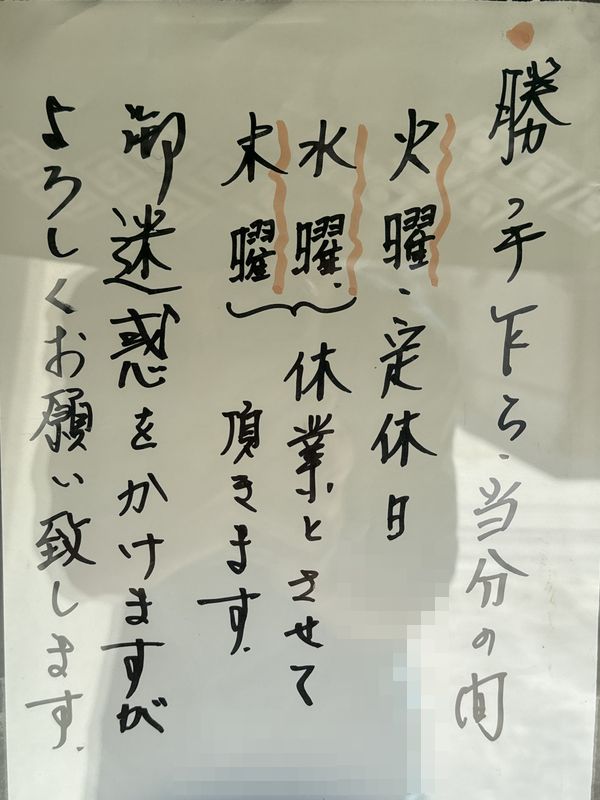 勝っ手乍ら、当分の间
火曜、定休日
水曜、休業とさせて
木曜 頂きます。
御迷惑をかけますが
よろしくお願い致します。